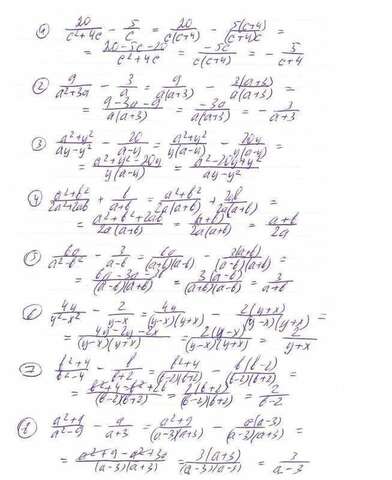 ① 20/(c²+4c) − 5/c = 20/(c(c+4)) − 5(c+4)/((c+4)c) =
= (20−5c−20)/(c²+4c) = −5c/(c(c+4)) = − 5/(c+4)
② 9/(a²+3a) − 3/a = 9/(a(a+3)) − 3(a+3)/(a(a+3)) =
= (9−3a−9)/(a(a+3)) = −3a/(a(a+3)) = − 3/(a+3)
③ (a²+y²)/(ay−y²) − 20/(a−y) = (a²+y²)/(y(a−y)) − 20y/(y(a−y)) =
= (a²+y²−20y)/(y(a−y)) = (a²−20y+y²)/(ay−y²)
④ (a²+b²)/(2a²+2ab) + b/(a+b) = (a²+b²)/(2a(a+b)) + 2ab/(2a(a+b)) =
= (a²+b²+2ab)/(2a(a+b)) = (a+b)²/(2a(a+b)) = (a+b)/2a
⑤ 6a/(a²−b²) − 3/(a−b) = 6a/((a+b)(a−b)) − 3(a+b)/((a−b)(a+b)) =
= (6a−3a−3b)/((a−b)(a+b)) = 3(a−b)/((a+b)(a−b)) = 3/(a+b)
⑥ 4y/(y²−x²) − 2/(y−x) = 4y/((y−x)(y+x)) − 2(y+x)/((y−x)(y+x)) =
= (4y−2y−2x)/((y−x)(y+x)) = 2(y−x)/((y−x)(y+x)) = 2/(y+x)
⑦ (b²+4)/(b²−4) − b/(b+2) = (b²+4)/((b−2)(b+2)) − b(b−2)/((b−2)(b+2)) =
= (b²+4−b²+2b)/((b−2)(b+2)) = 2(b+2)/((b−2)(b+2)) = 2/(b−2)
⑧ (a²+9)/(a²−9) − a/(a+3) = (a²+9)/((a−3)(a+3)) − a(a−3)/((a−3)(a+3)) =
= (a²+9−a²+3a)/((a−3)(a+3)) = 3(a+3)/((a−3)(a+3)) = 3/(a−3)